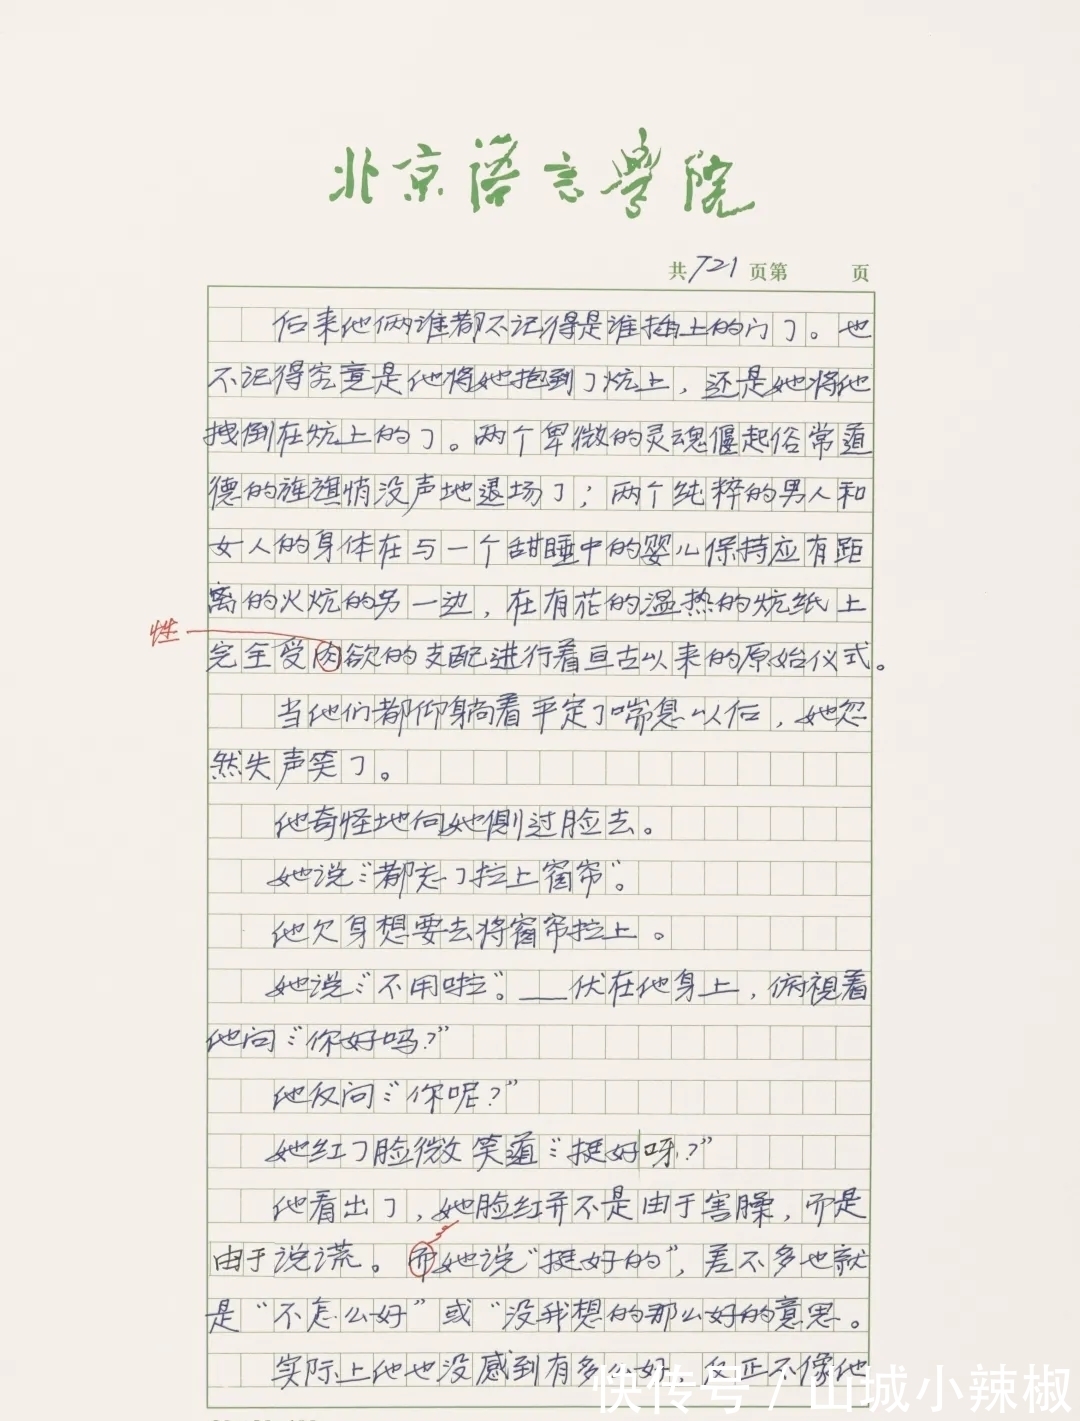 北京语言学院
共721页第 页
后来他俩谁都不记得是谁插上的门了。也
不记得究竟是他将她抱到了炕上，还是她将他
拽倒在炕上的了。两个卑微的灵魂偃起俗常道
德的旌旗悄没声地退场了；两个纯粹的男人和
女人的身体在与一个甜睡中的婴儿保持应有距
离的火炕的另一边，在有花的温热的炕纸上
性
完全受肉欲的支配进行着亘古以来的原始仪式。
当他们都仰躺着平定了喘息以后，她忽
然失声笑了。
他奇怪地向她侧过脸去。
她说：“都忘了拉上窗帘”。
他欠身想要去将窗帘拉上。
她说：“不用啦”。——伏在他身上，俯視着
他问：“你好吗？”
他反问：“你呢？”
她红了脸微笑道：“挺好呀？”
他看出了，她脸红并不是由于害臊，而是
由于说谎。而她说“挺好的”，差不多也就
是“不怎么好”或“没我想的那么好的意思。
实际上他也没感到有多么好，反正不像他
快传号/山城小辣椒